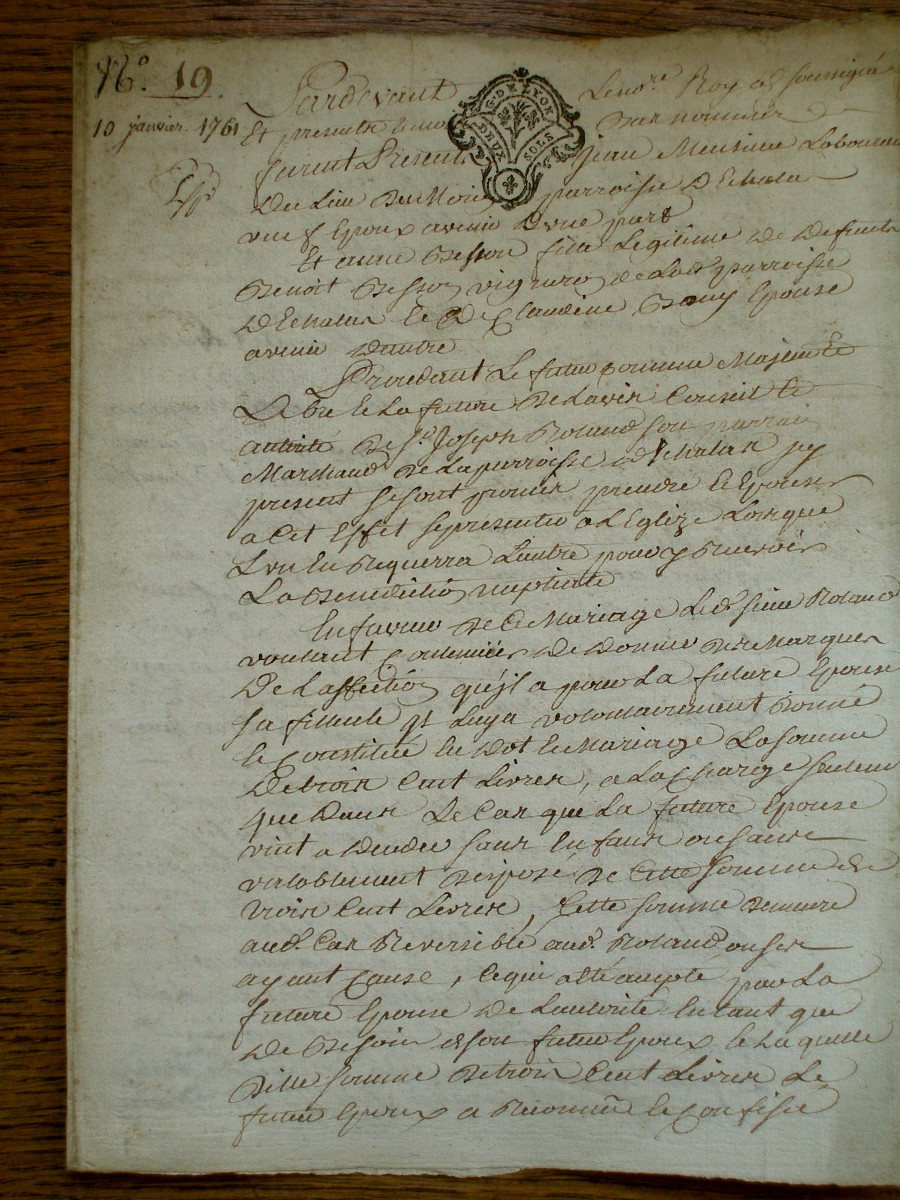 N.º 19
10 janvier 1761
Pardevant Le no.re Roy al soussigné
G. DE LYON
DEUX SOLS
Et presents
furent Presents jean
Du Lieu parroisse D'Echalas
veuf Epoux avenir D'une part
Et anne Besson fille Legitime de Defunts
Benoit Besson vigneron de Lad. parroisse
D'Echalas Et De Claudine Epouse
avenir D'autre
Procedant Le futur comme Majeur Et
Libre Et La future De Lavis Conseil Et
autorité De s.r Joseph Roland son parrain
Marchand De La parroisse d'Echalas jcy
present se sont promis prendre Et Epouser
a Cet Effet se presenter a L'Eglize Lorsque
L'un En Requerra L'autre pour y Recevoir
La Benediction nuptiale
En faveur De Ce Mariage Led. sieur Roland
voulant De Donner Des Marques
De Laffection qu'jl a pour La future Epouse
sa filleule jl Luy a volontairement Donné
Et Constitué En Dot Et Mariage La somme
De trois Cent Livres, a La Charge seulem
que Dans Le Cas que La future Epouse
vint a Deceder sans Enfans ou sans
valablement Disposé De Cette somme de
trois Cent Livres, Cette somme Demeure
aud. Cas Reversible aud. Roland ou ses
ayant Cause, Ce qui a Eté accepté par La
future Epouse De Lautorité En tant que
De Besoin de son futur Epoux Et La quelle
Ditte somme De trois Cent Livres Le
futur Epoux a Reconnu Et Confessé